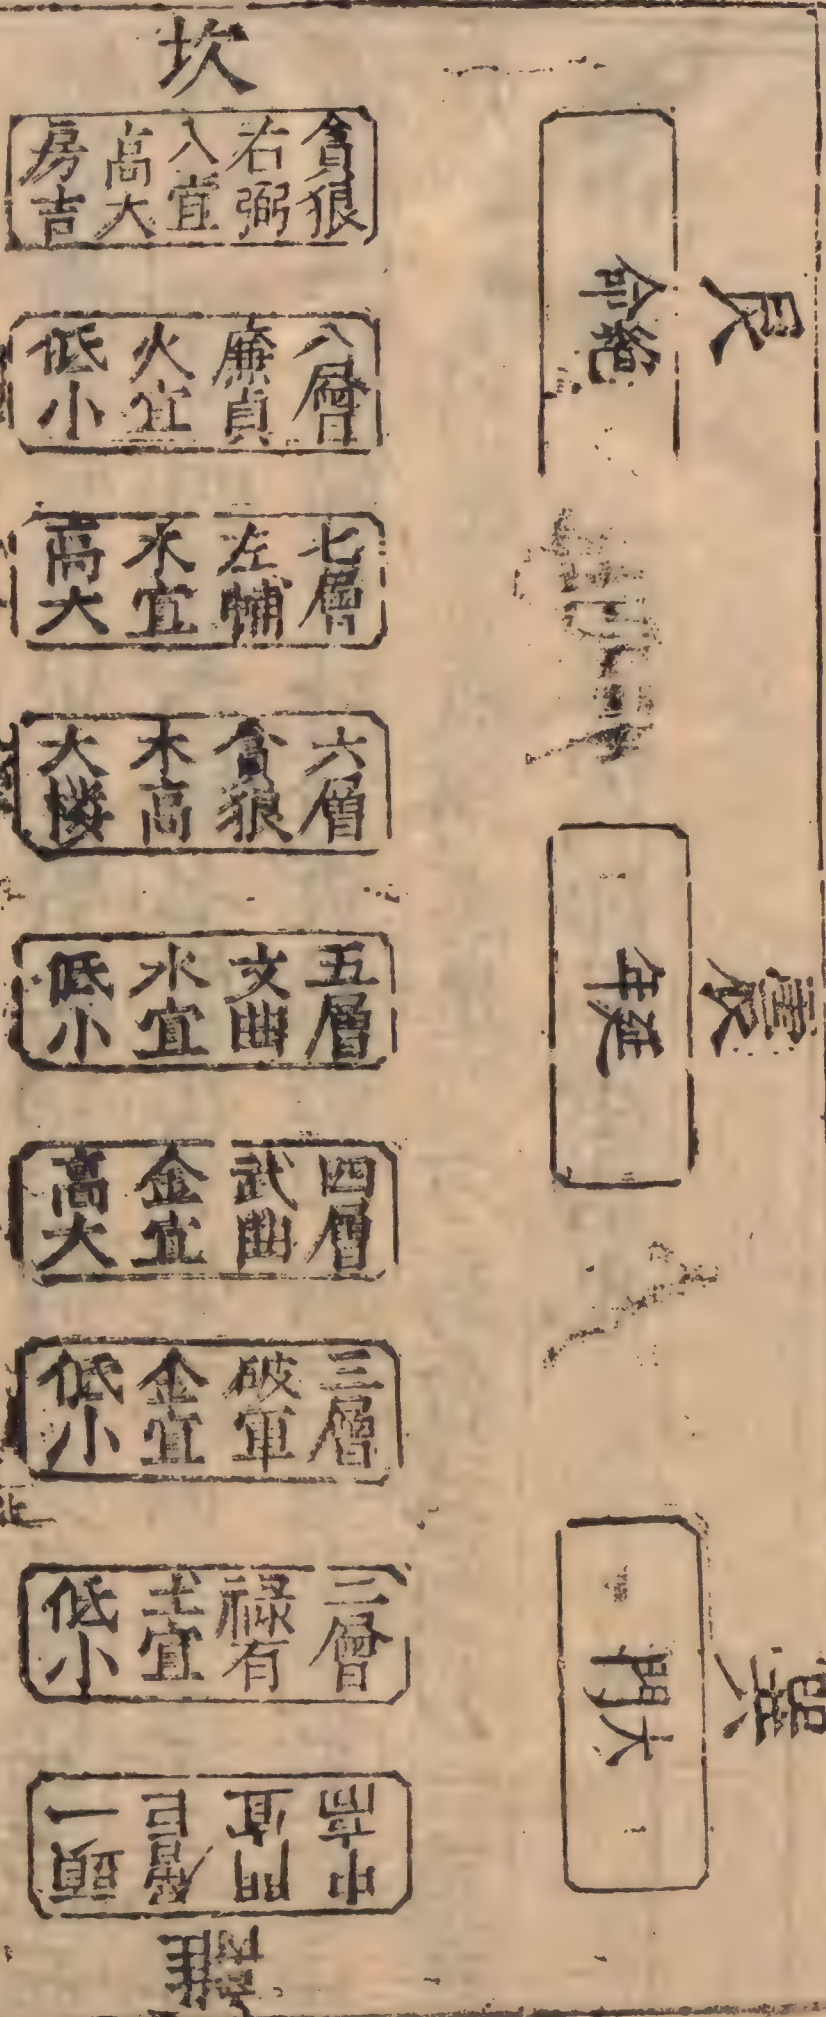 艮
絕命
震
延年
巽
大門
坎
貪狼
右弼
八宜
高大
房吉
八層
廉貞
火宜
低小
七層
左輔
水宜
高大
六層
貪狼
木高
大楼
五層
文曲
水宜
低小
四層
武曲
金宜
高大
三層
破軍
金宜
低小
二層
祿有
土宜
低小
頭一
層巨
門宜
中
離